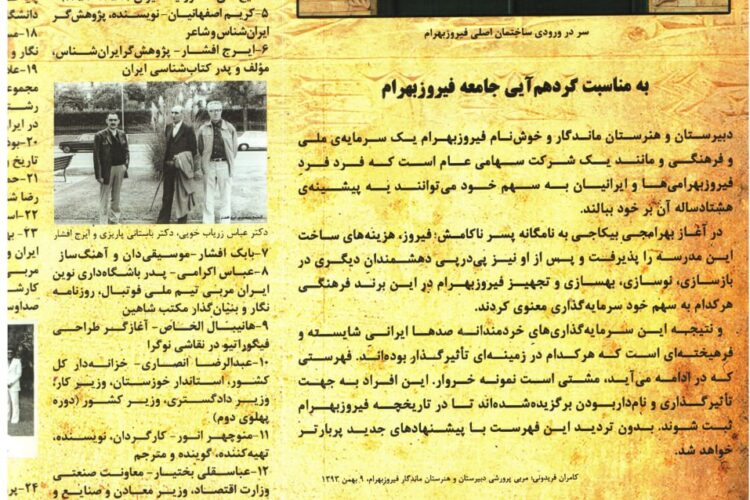 سر در ورودی ساختمان اصلی فیروزبهرام
به مناسبت گردهم‌آیی جامعه فیروزبهرام
دبیرستان و هنرستان ماندگار و خوش‌نام فیروزبهرام یک سرمایه‌ی ملی
و فرهنگی و مانند یک شرکت سهامی عام است که فرد فردِ
فیروزبهرامی‌ها و ایرانیان به سهم خود می‌توانند به پیشینه‌ی
هشتادساله آن بر خود ببالند.
در آغاز بهرامجی بیکاجی به نامگانه پسر ناکامش: فیروز، هزینه‌های ساخت
این مدرسه را پذیرفت و پس از او نیز پی‌درپی دهشمندان دیگری در
بازسازی، نوسازی، بهسازی و تجهیز فیروزبهرام در این برند فرهنگی
هرکدام به سهم خود سرمایه‌گذاری معنوی کردند.
و نتیجه این سرمایه‌گذاری‌های خردمندانه صدها ایرانی شایسته و
فرهیخته‌ای است که هرکدام در زمینه‌ای تأثیرگذار بوده‌اند. فهرستی
که در ادامه می‌آید، مشتی است نمونه خروار. این افراد به جهت
تأثیرگذاری و نام‌داربودن برگزیده‌شده‌اند تا در تاریخچه فیروزبهرام
ثبت شوند. بدون تردید این فهرست با پیشنهادهای جدید پربارتر
خواهد شد.
کامران فریدونی: مربی پرورشی دبیرستان و هنرستان ماندگار فیروزبهرام، ۹ بهمن ۱۳۹۳
۵-کریم اصفهانیان- نویسنده، پژوهش‌گر
ایران‌شناس وشاعر
۶-ایرج افشار- پژوهش‌گرایران‌شناس،
مؤلف و پدر کتاب‌شناسی ایران
دکتر عباس زریاب خویی، دکتر باستانی پاریزی و ایرج افشار
۷-بابک افشار-موسیقی‌دان و آهنگ‌ساز
۸-عباس اکرامی- پدر باشگاه‌داری نوین
ایران مربی تیم ملی فوتبال، روزنامه
نگار و بنیان‌گذار مکتب شاهین
۹-هانیبال الخاص- آغازگر طراحی
فیگوراتیو در نقاشی نوگرا
۱۰-عبدالرضا انصاری- خزانه‌دار کل
کشور، استاندار خوزستان، وزیر کار؛
وزیر دادگستری، وزیر کشور (دوره
پهلوی دوم)
۱۱-منوچهر انور- کارگردان، نویسنده،
تهیه‌کننده، گوینده و مترجم
۱۲-عباسقلی بختیار- معاونت صنعتی
وزارت اقتصاد، وزیر معادن و صنایع و
دانشگا
۱۸-
نگار و
۱۹-علا
مجموع
رشت
در ایرا
۲۰-بود
تاریخ و
۲۱-حم
رضا ش
۲۲-اس
۲۳-
ایران و
مربی
کارش
صداوس
۲۴-پر